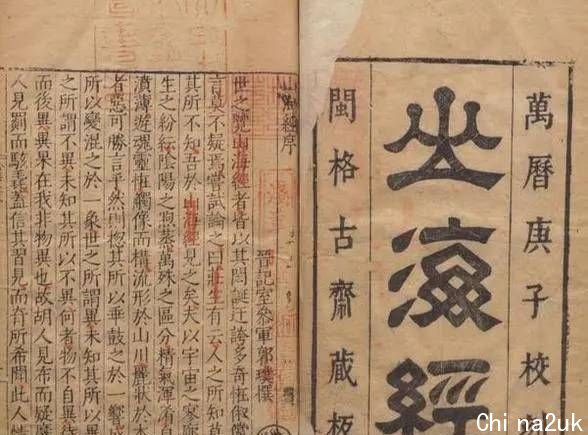 萬曆庚子校
山海經
閩格古齋藏板
山海經序
晉記室參軍郭璞撰
世之覽山海經者皆以其閎誕迂誇多奇怪俶儻
言莫不疑焉嘗試論之曰莊生有云人之所知莫
其所不知吾於山海經見之矣夫以宇宙之寥廓
生之紛紜陰陽之煦蒸萬殊之區分精氣渾淆自
濆薄遊魂靈怪觸像而構流形於山川麗狀於木
者惡可勝言乎然則總其所以乖鼓之於一響成
所以變混之於一象世之所謂異未知其所以異
之所謂不異未知其所以不異何者物不自異待
而後異異果在我非物異也故胡人見布而疑黂
人見罽而駭毳蓋信其習見而奇所希聞此人情
Chi na2uk